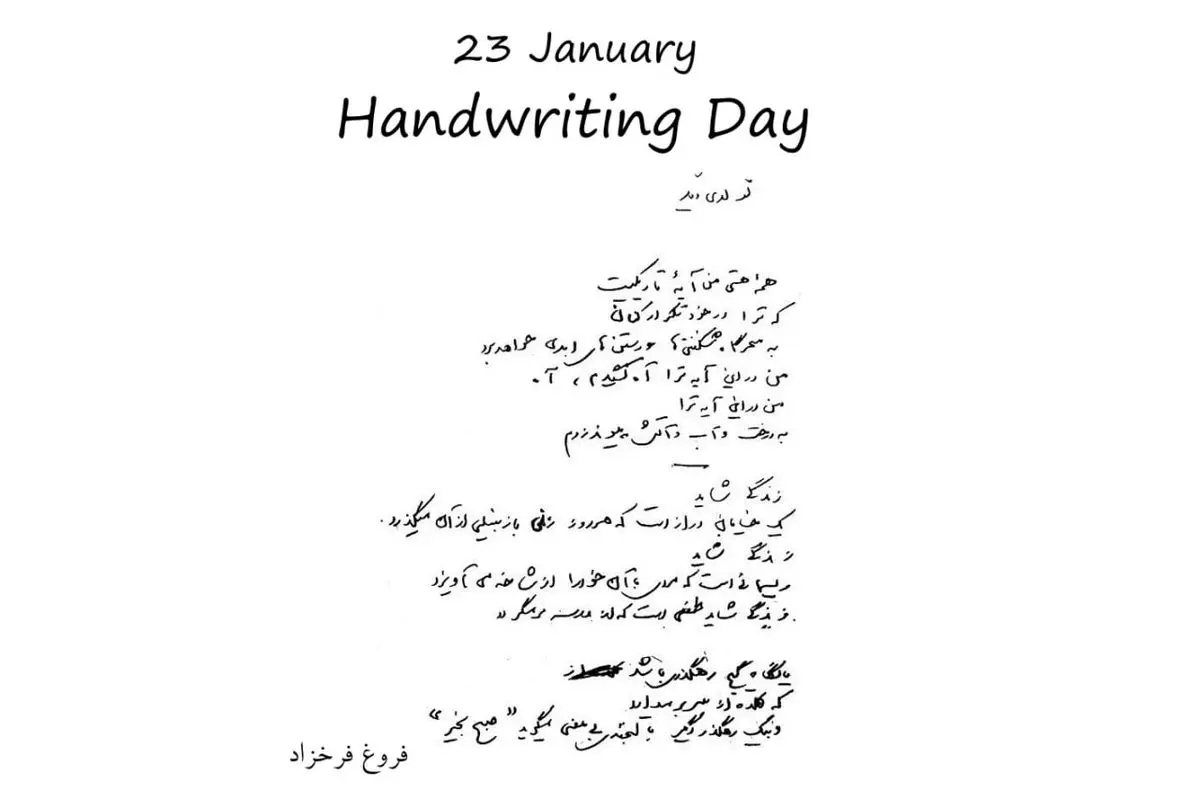 23 January
Handwriting Day
تولدی دیگر
همهٔ هستی من آیهٔ تاریکیست
که ترا در خود تکرار کنان
به سحرگاه شکفتن‌ها و رستن‌های ابدی خواهد برد
من در این آیه ترا آه کشیدم، آه
من در این آیه ترا
به درخت و آب و آتش پیوند زدم
زندگی شاید
یک خیابان دراز است که هر روز زنی با زنبیلی از آن میگذرد.
زندگی شاید
ریسمانی است که مردی با آن خود را از شاخه می آویزد
زندگی شاید طفلی است که از مدرسه برمیگردد.
یا نگاه گیج رهگذری باشد
که کلاه از سر بر میدارد
و بیک رهگذر دیگر با لبخندی بی معنی میگوید "صبح بخیر"
فروغ فرخزاد